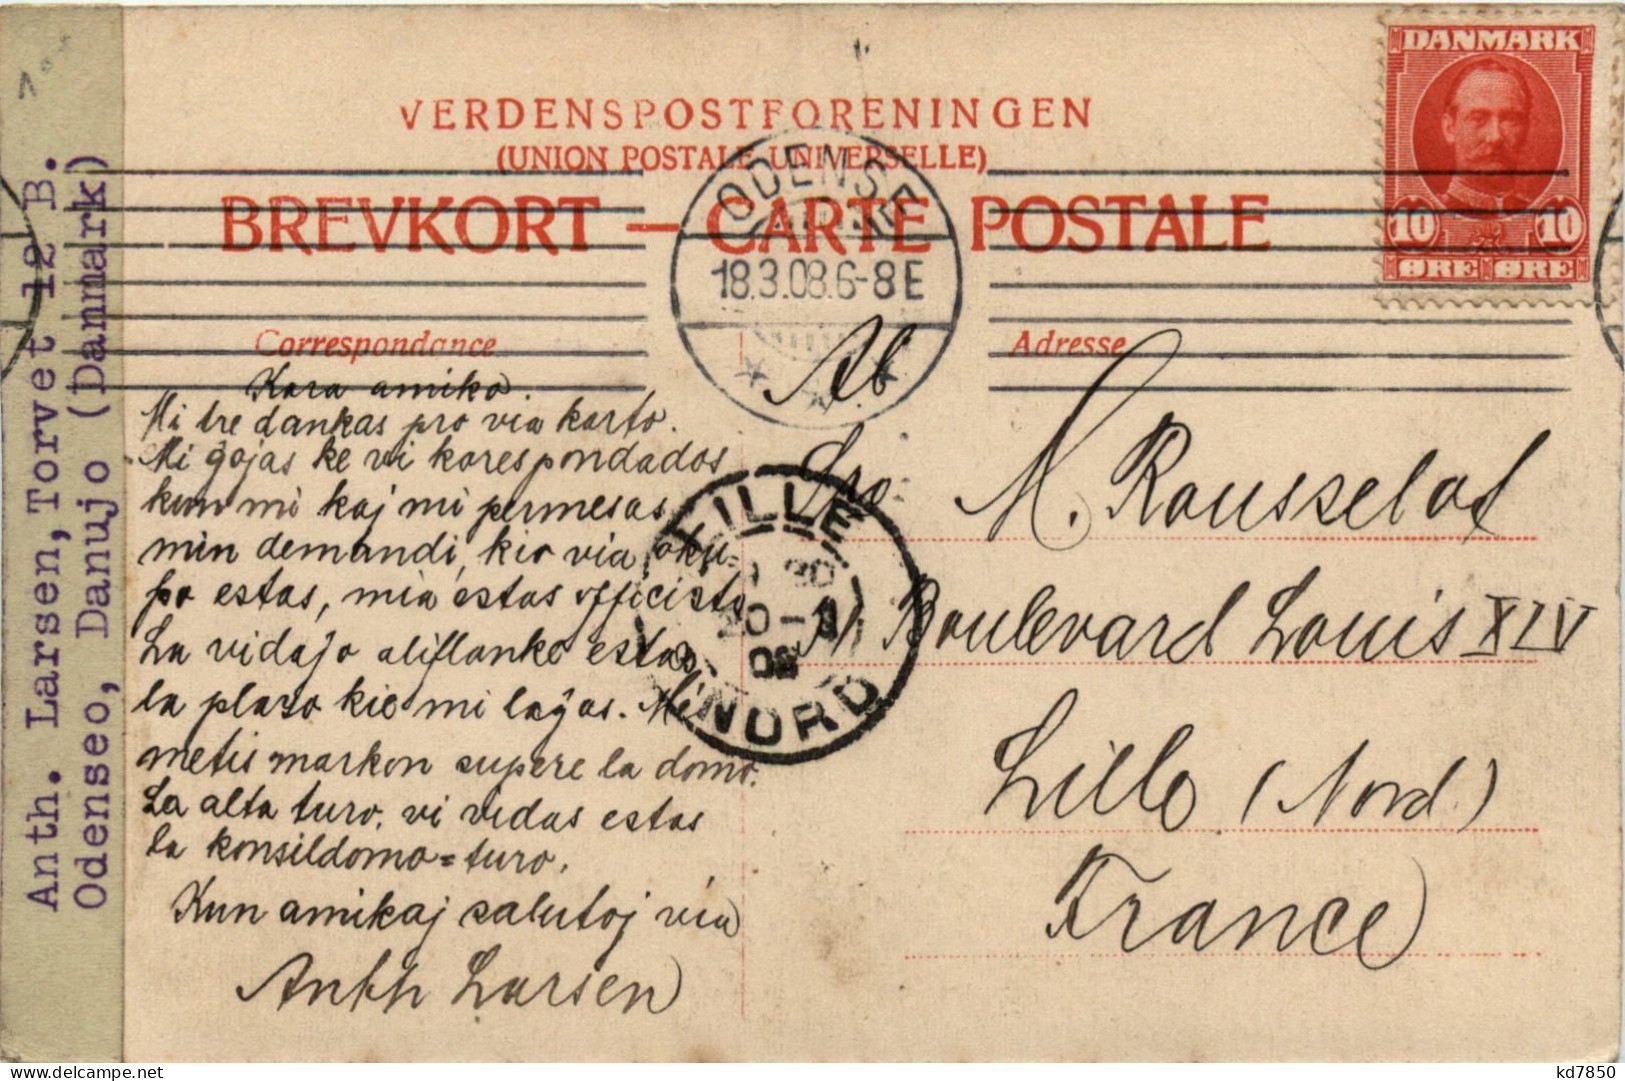 VERDENSPOSTFORENINGEN
(UNION POSTALE UNIVERSELLE)
BREVKORT — CARTE POSTALE
DANMARK
10 10
ØRE ØRE
ODENSE
18.3.08.6-8E
Correspondance
Adresse
Anth. Larsen, Torvet 12 B.
Odenseo, Danujo (Danmark)
Kara amiko.
Mi tre dankas pro via karto.
Mi ĝojas ke vi korespondados
kun mi kaj mi permesas
min demandi, kio via oku-
po estas, mia estas officisto
La vidaĵo aliflanke estas
la plazo kie mi laĝas. Mi
metis markon supere la domo.
La alta turo, vi vidas estas
la konsildomo=turo.
Kun amikaj salutoj via
Anth Larsen
LILLE
NORD
Sro M. Rousselot
Boulevard Louis XIV
Lille (Nord)
France
kd7850